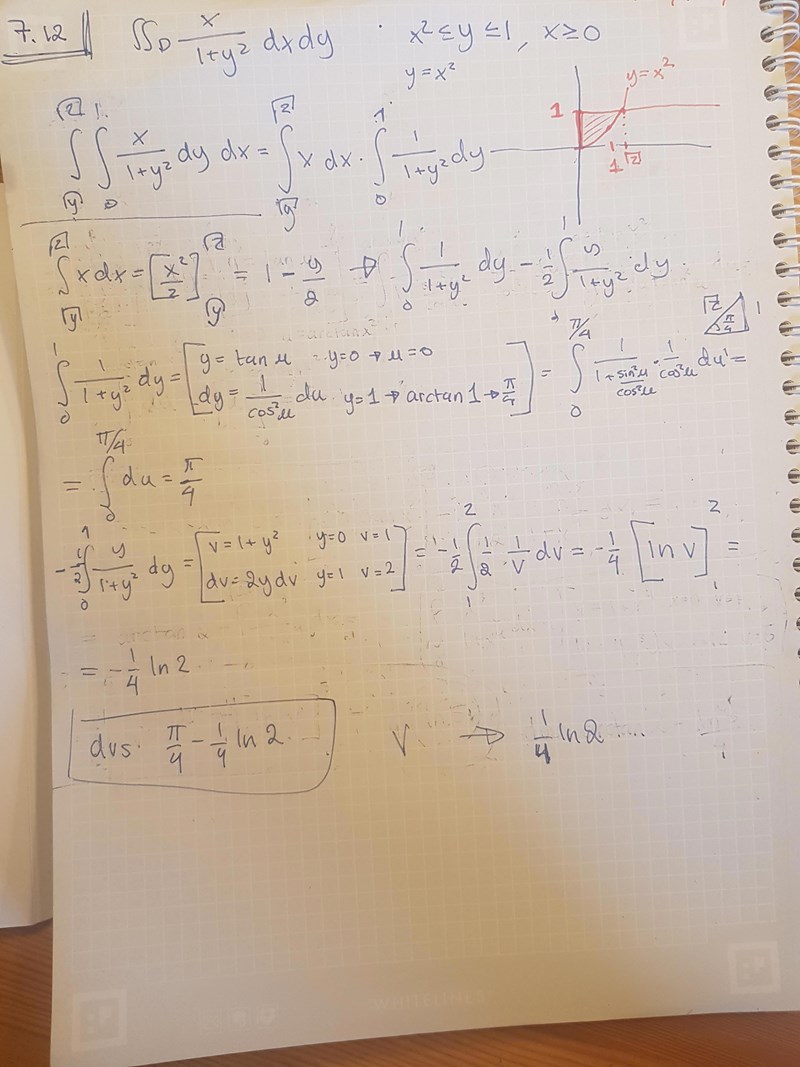 7.12 ∬D x/(1+y²) dxdy · x² ≤ y ≤ 1, x ≥ 0
y = x²
y = x²
1
1 √2
∫_{√y}^{√2} ∫_0^1 x/(1+y²) dy dx = ∫_{√y}^{√2} x dx · ∫_0^1 1/(1+y²) dy
∫_{√y}^{√2} x dx = [x²/2]_{√y}^{√2} = 1 - y/2 → ∫_0^1 1/(1+y²) dy - 1/2 ∫^1 y/(1+y²) dy
√2 π/4 1
∫_0^1 1/(1+y²) dy = [y = tan u y=0 → u=0
dy = 1/cos²u du y=1 → arctan 1 → π/4] = ∫_0^{π/4} 1/(1+sin²u/cos²u) · 1/cos²u du =
= ∫_0^{π/4} du = π/4
-1/2 ∫_0^1 y/(1+y²) dy = [v=1+y² y=0 v=1
dv=2y dv y=1 v=2] = -1/2 ∫_1^2 1/2 · 1/v dv = -1/4 [ln v]_1^2 =
= -1/4 ln 2
dvs. π/4 - 1/4 ln 2 V → 1/4 ln 2 ....
WHITELINES